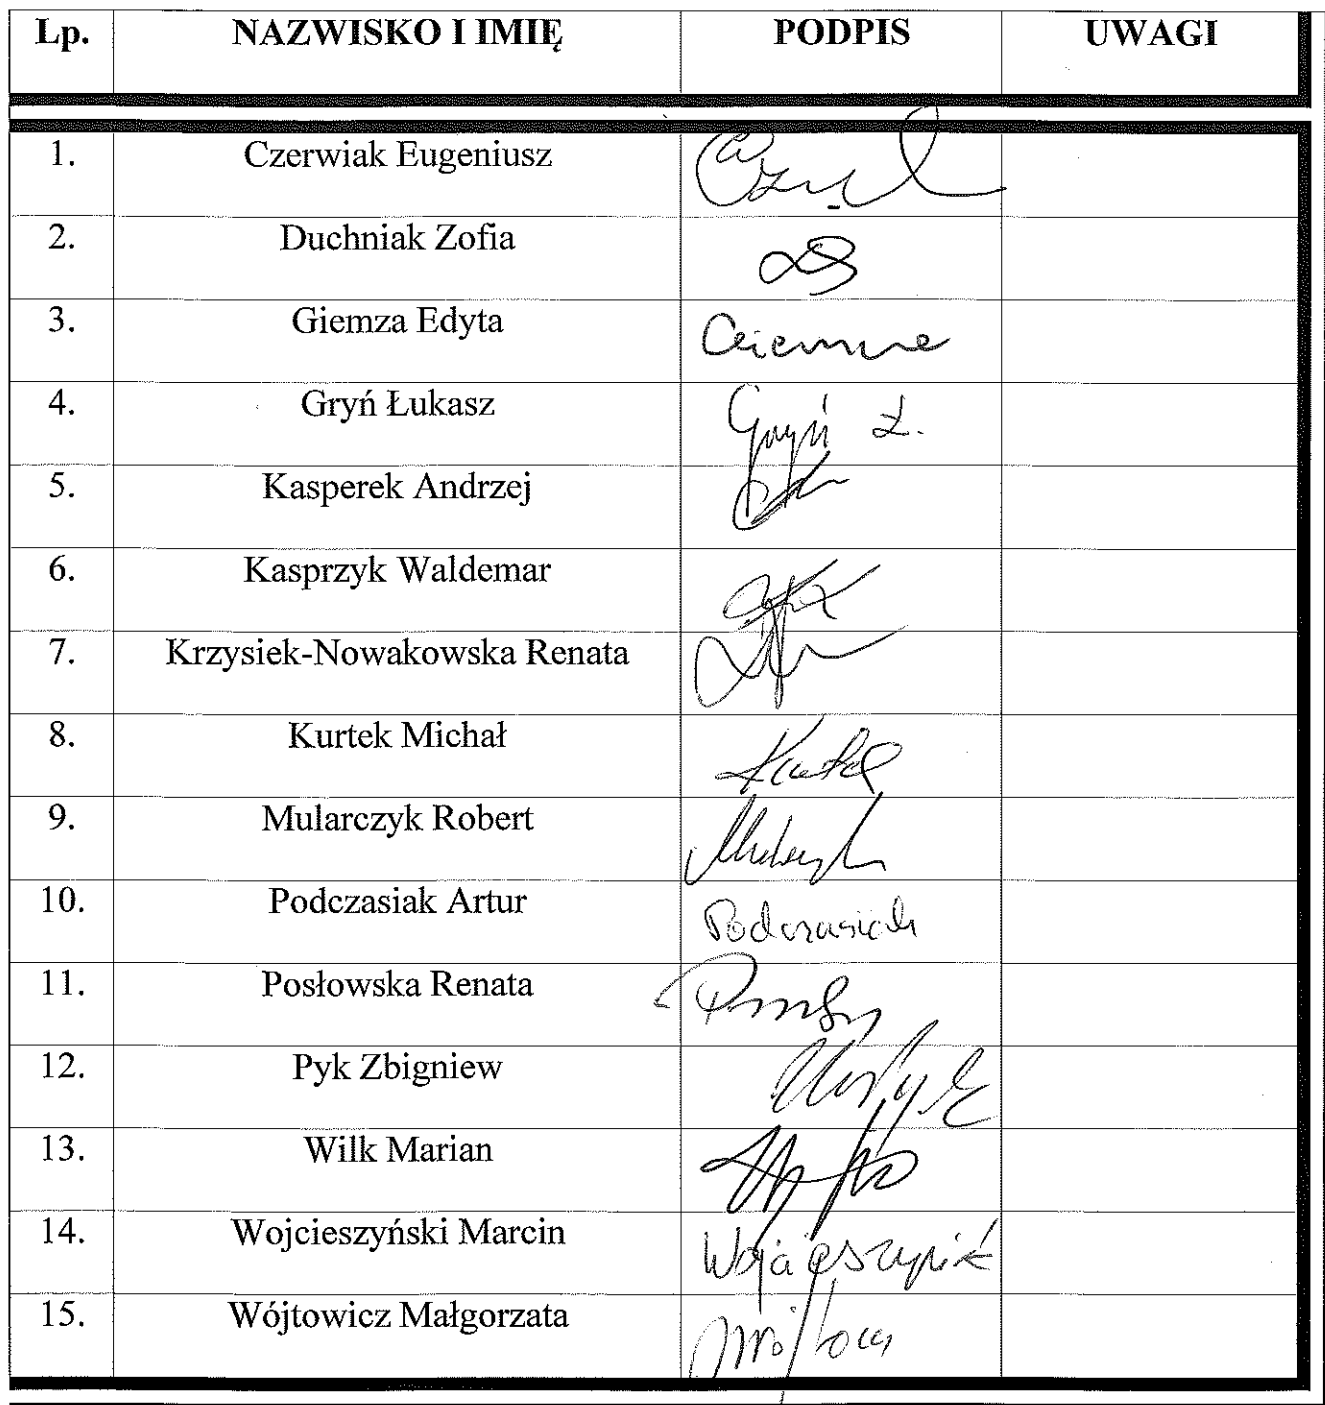 Lp. NAZWISKO I IMIĘ PODPIS UWAGI
1. Czerwiak Eugeniusz
2. Duchniak Zofia
3. Giemza Edyta
4. Gryń Łukasz Gryń Ł.
5. Kasperek Andrzej
6. Kasprzyk Waldemar
7. Krzysiek-Nowakowska Renata
8. Kurtek Michał
9. Mularczyk Robert
10. Podczasiak Artur Podczasiak
11. Posłowska Renata
12. Pyk Zbigniew
13. Wilk Marian
14. Wojcieszyński Marcin
15. Wójtowicz Małgorzata